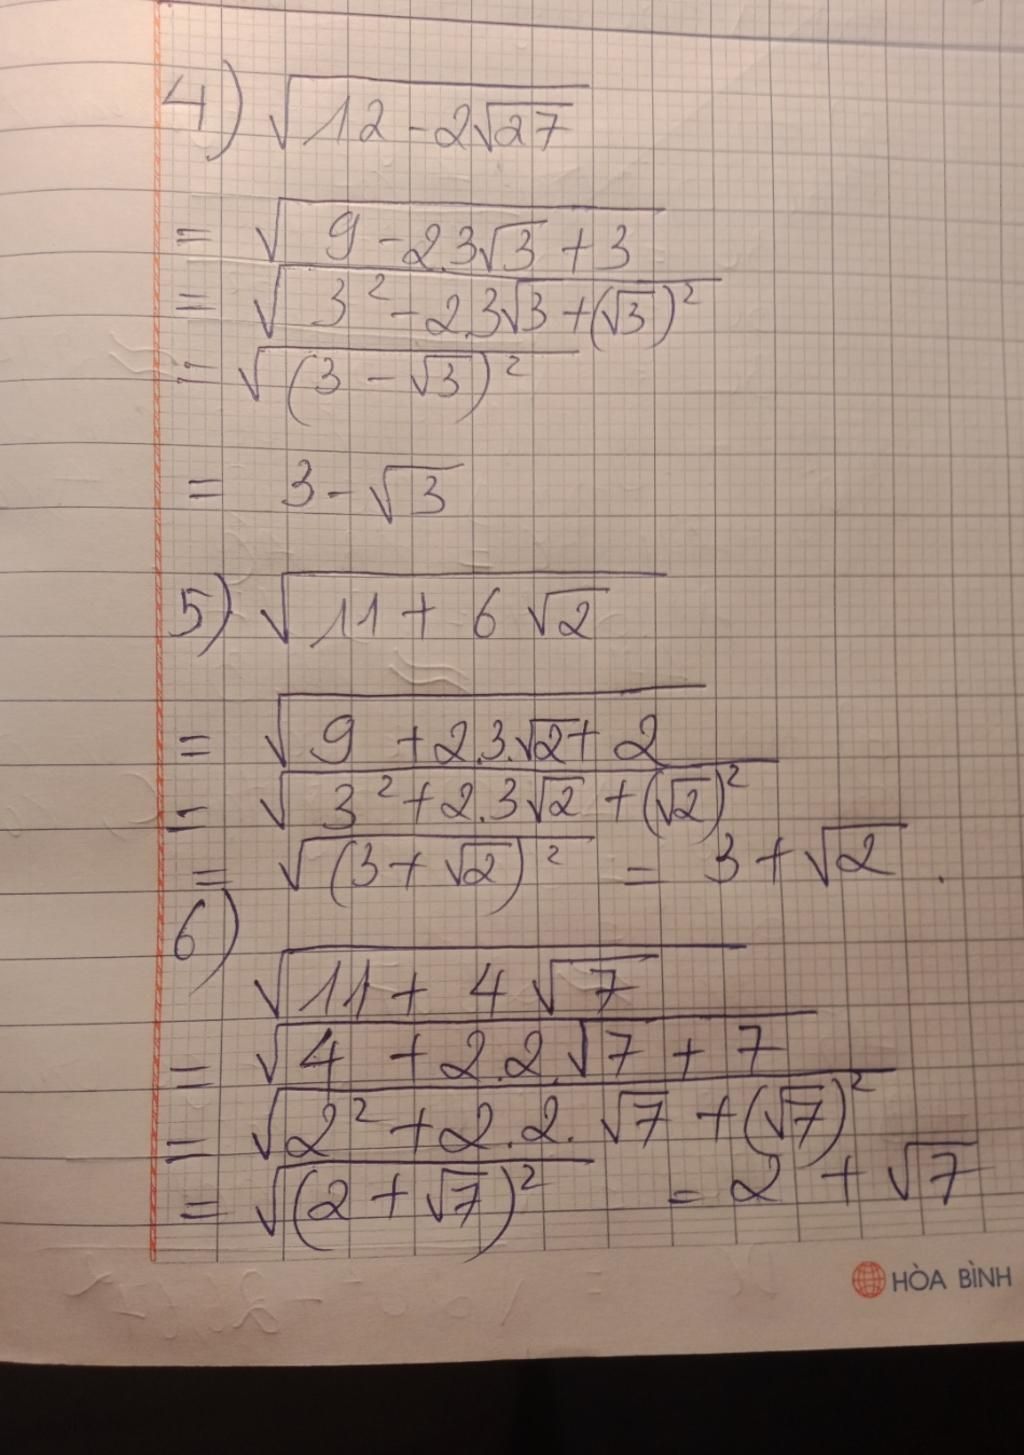 4) √(12 - 2√27)
= √(9 - 2.3√3 + 3)
= √(3² - 2.3√3 + (√3)²)
= √((3 - √3)²)
= 3 - √3
5) √(11 + 6√2)
= √(9 + 2.3.√2 + 2)
= √(3² + 2.3√2 + (√2)²)
= √((3 + √2)²) = 3 + √2 .
6)
√(11 + 4√7)
= √(4 + 2.2.√7 + 7)
= √(2² + 2.2.√7 + (√7)²)
= √((2 + √7)²) = 2 + √7
HÒA BÌNH